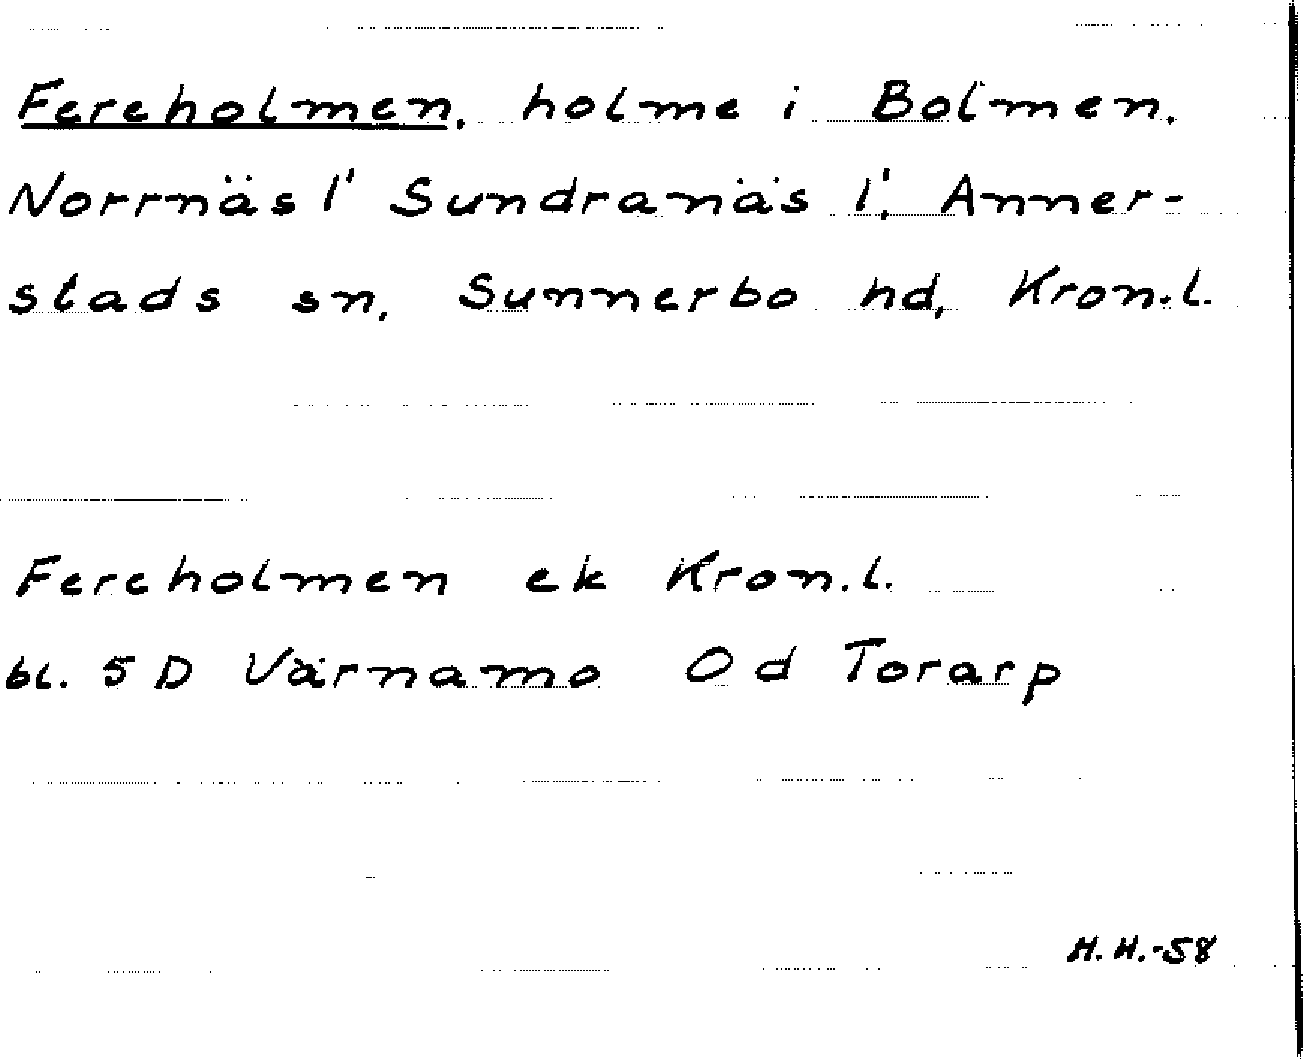 Fereholmen, holme i Bolmen,
Norrnäs 1' Sundranäs 1', Anner-
stads sn, Sunnerbo hd, Kron.l.
Fereholmen ek Kron.l.
bl. 5 D Värnamo Od Torarp
H.H.-58